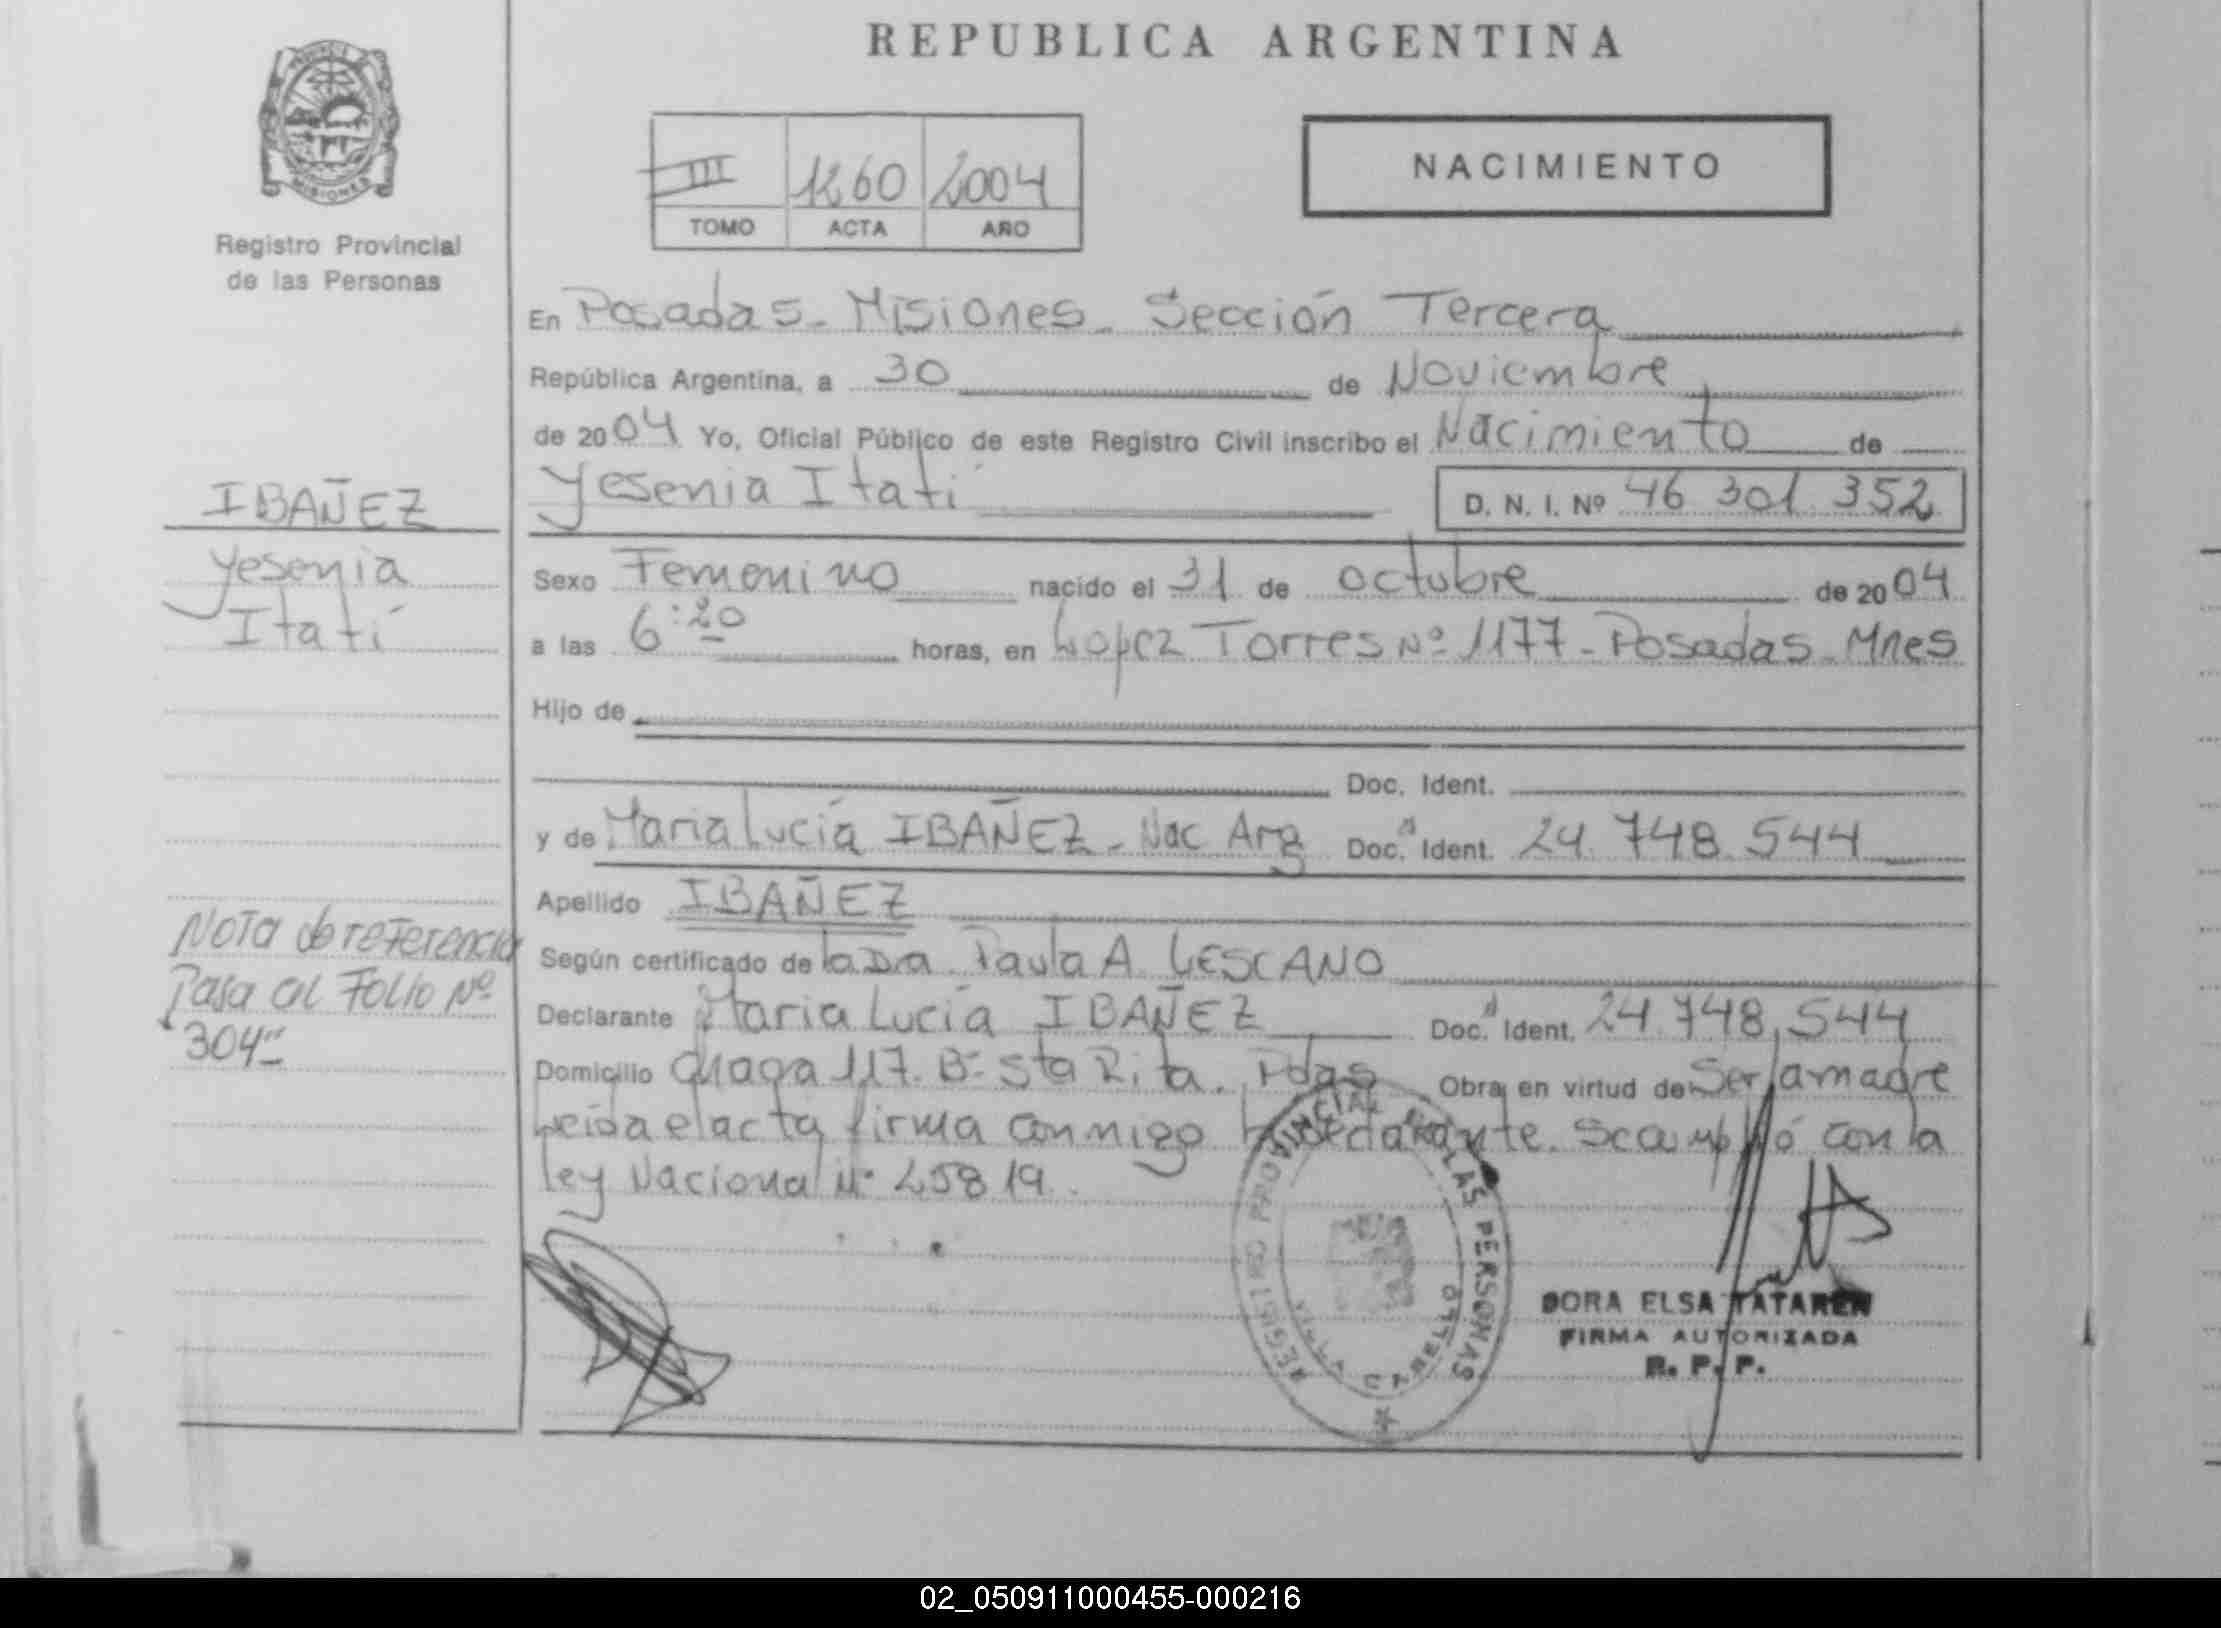 REPUBLICA ARGENTINA
PROVINCIA DE
MISIONES
Registro Provincial
de las Personas
III 1260 2004
TOMO ACTA AÑO
NACIMIENTO
En Posadas - Misiones - Sección Tercera
República Argentina, a 30 de Noviembre
de 2004 Yo, Oficial Público de este Registro Civil inscribo el Nacimiento de
Yesenia Itatí
D. N. I. Nº 46 301 352
IBAÑEZ
Yesenia
Itatí
Sexo Femenino nacido el 31 de octubre de 2004
a las 6:20 horas, en Lopez Torres Nº 1177 - Posadas - Mnes
Hijo de
Doc. Ident.
y de Maria Lucía IBAÑEZ - Nac Arg Doc. Ident. 24.748.544
Apellido IBAÑEZ
Según certificado de la Dra. Paula A LESCANO
Declarante Maria Lucía IBAÑEZ Doc. Ident. 24.748.544
Domicilio 117. Bº Sta Rita. Pdas Obra en virtud de Ser la madre
Leida el acta firma conmigo la declarante. Se cumplió con la
ley Nacional Nº 25819.
Nota de referencia
Pasa al Folio Nº
304
REGISTRO PROVINCIAL DE LAS PERSONAS
VILLA CABELLO
DORA ELSA TATAREN
FIRMA AUTORIZADA
R. P. P.
02_050911000455-000216